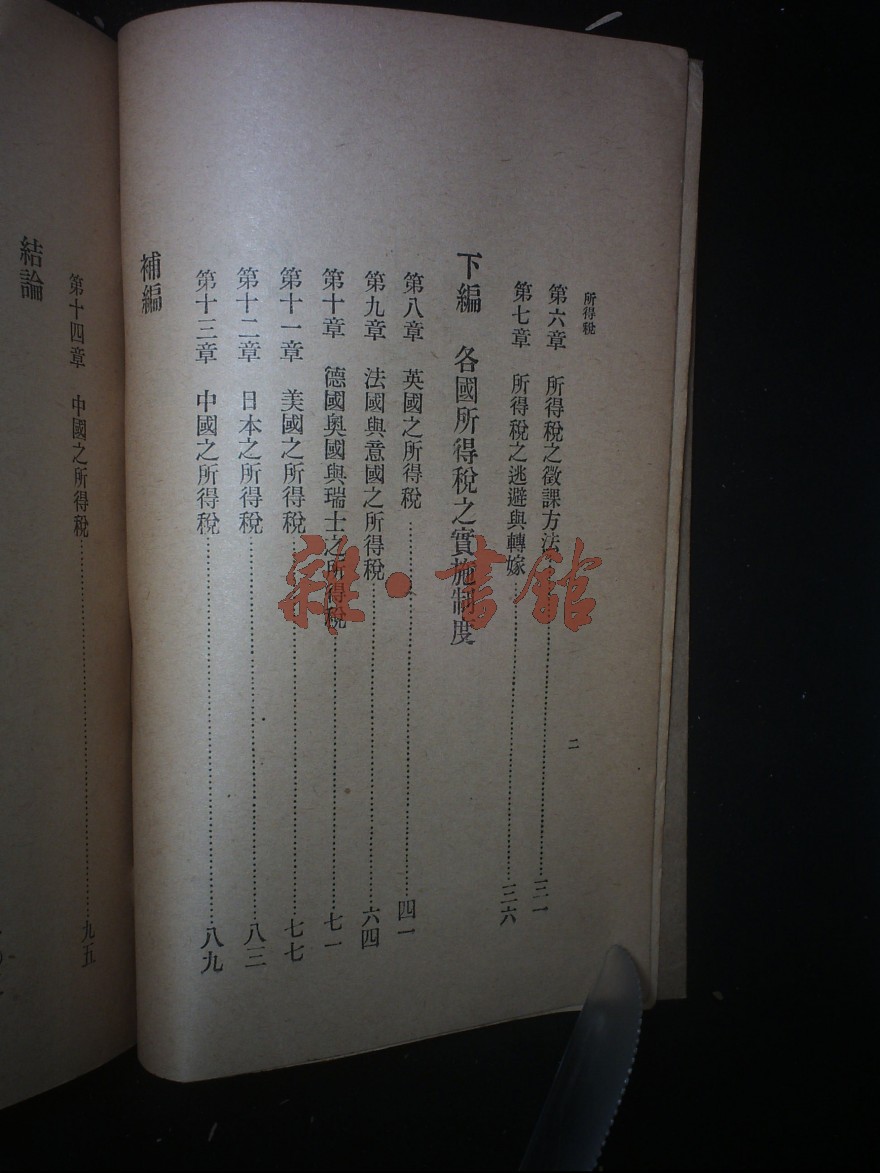 所得稅
二
第六章　所得稅之徵課方法……三一
第七章　所得稅之逃避與轉嫁……三六
下編　各國所得稅之實施制度
第八章　英國之所得稅……四一
第九章　法國與意國之所得稅……六四
第十章　德國奧國與瑞士之所得稅……七一
第十一章　美國之所得稅……七七
第十二章　日本之所得稅……八三
第十三章　中國之所得稅……八九
補編
第十四章　中國之所得稅……九五
結論
雜·書館